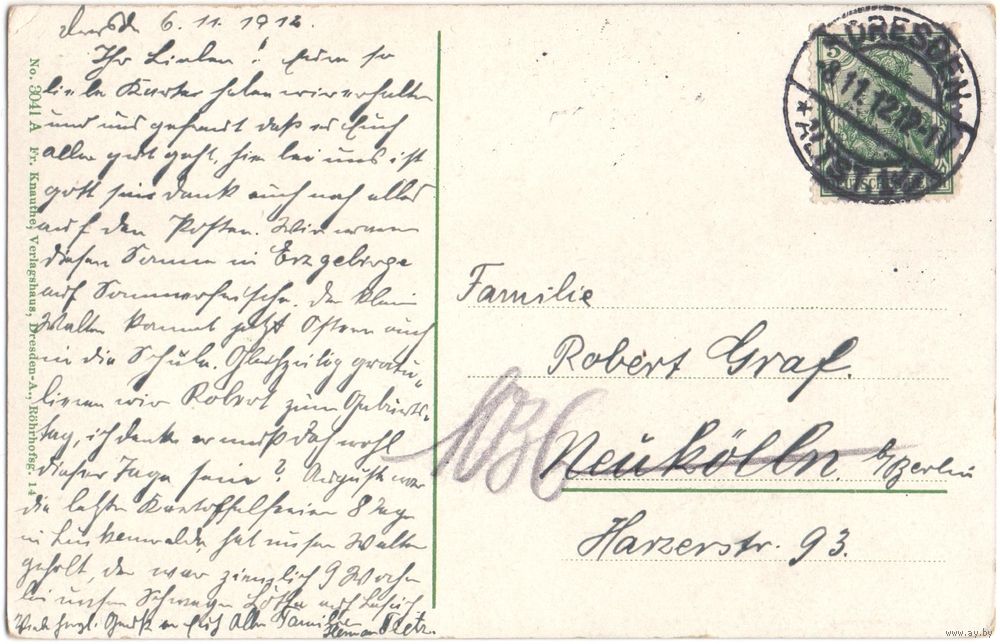 Dresden 6.11.1912.
Ihr Lieben! Eure so
liebe Karte haben wir erhalten
und uns gefreut daß es Euch
allen gut geht, hier bei uns ist
gott sei dank auch noch alles
auf den Posten. Wir waren
diesen Sommer in Erzgebirge
auf Sommerfrische. Der kleine
Walter kommt jetzt Ostern auch
in die Schule. Gleichzeitig gratu„
lieren wir Robert zum Geburts„
tag, ich denke er muß doch wohl
dieser Tage sein? Auguste war
die letzten Kartoffelferien 8 Tage
in Luckenwalde, hat unsern Walter
geholt, der war ziemlich 9 Wochen
bei unsern Schwager
Viele herzl. Grüße an Euch Alle Familie
Herman
No. 3041 A Fr. Knauthe, Verlagshaus, Dresden-A., Röhrhofsg. 14
DRESDEN
8.11.12.12-1N
* ALTST.
5
Familie
Robert Graf.
1036
Neukölln b/Berlin
Harzerstr. 93.
www.ay.by